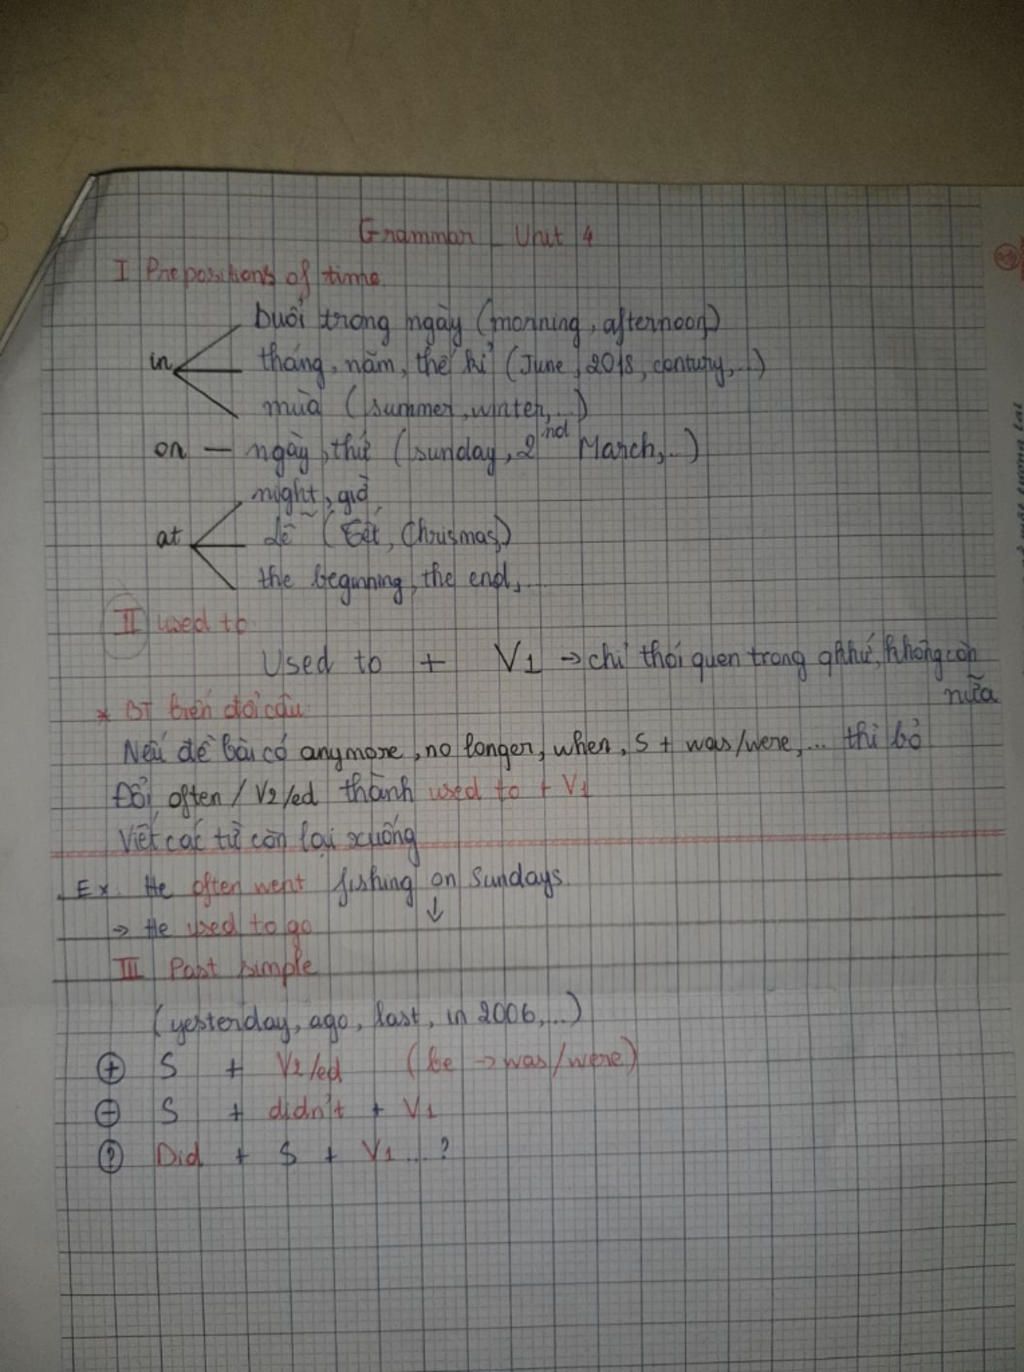 Grammar _ Unit 4
I Prepositions of time
buổi trong ngày (morning, afternoon)
in tháng, năm, thế kỉ (June, 2018, century,...)
mùa (summer, winter,...)
on — ngày, thứ (sunday, 2nd March,...)
night, giờ
at lễ (Tết, Chrismas)
the beginning, the end,...
II used to
Used to + V1 → chỉ thói quen trong qkhứ, không còn
nữa
* BT biến đổi câu
Nếu đề bài có anymore, no longer, when, S + was/were,... thì bỏ
Đổi often / V2/ed thành used to + V1
Viết các từ còn lại xuống
Ex. He often went fishing on Sundays
↓
→ He used to go
III Past simple
(yesterday, ago, last, in 2006,...)
(+) S + V2/ed (be → was/were)
(-) S + didn't + V1
(?) Did + S + V1...?